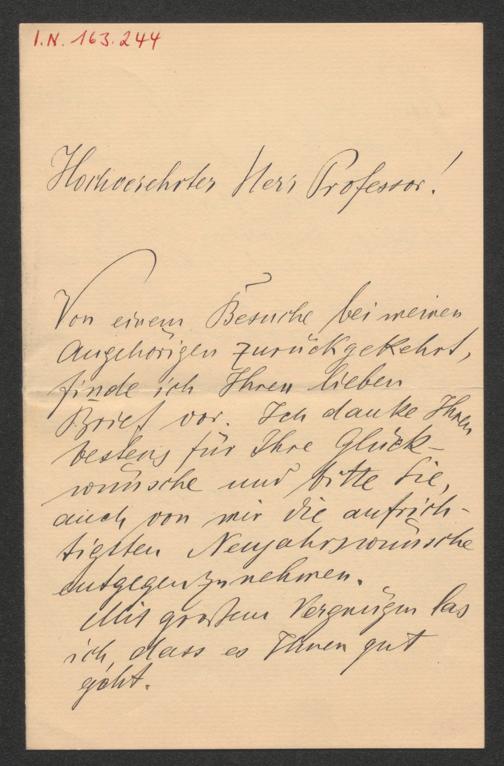 I.N. 163.244
Hochverehrter Herr Professor!
Von einem Besuche bei meinen
Angehörigen zurückgekehrt,
finde ich Ihren lieben
Brief vor. Ich danke Ihnen
bestens für Ihre Glück-
wünsche und bitte Sie,
auch von mir die aufrich-
tigsten Neujahrswünsche
entgegenzunehmen.
Mit großem Vergnügen las
ich, dass es Ihnen gut
geht.